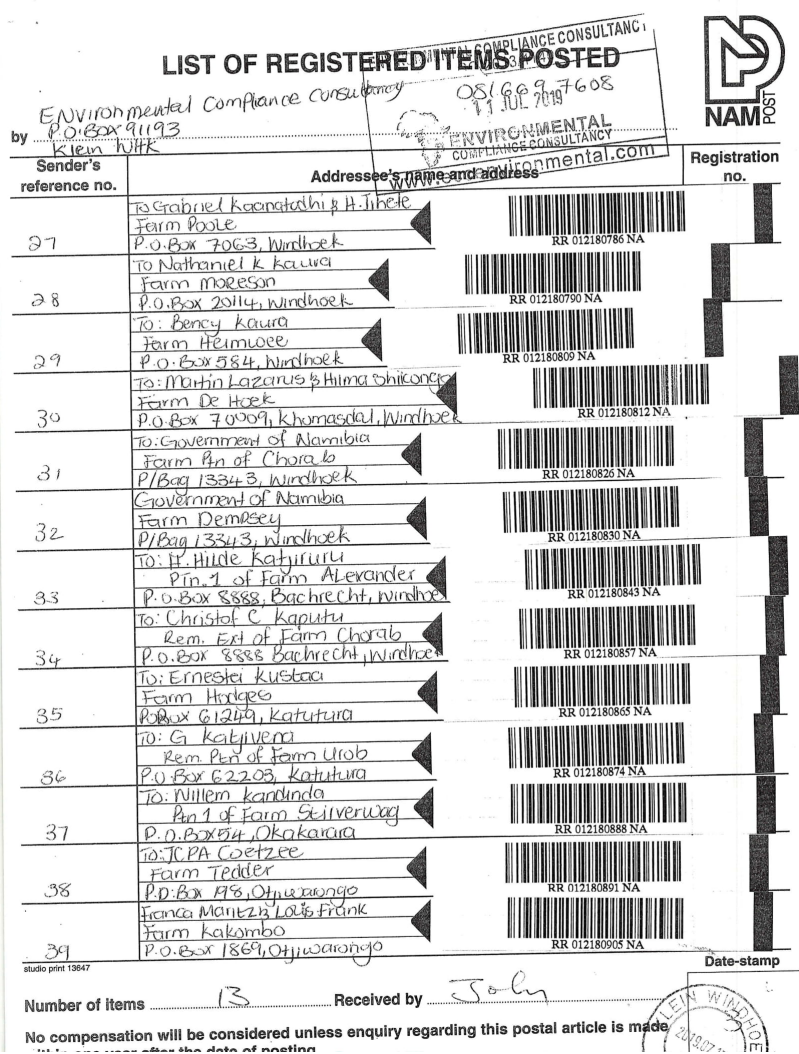 LIST OF REGISTERED ITEMS POSTED
ENVIRONMENTAL COMPLIANCE CONSULTANCY
Environmental Compliance Consultancy
0816697608
11 JUL 2019
NAM POST
by P.O. Box 91193
Klein WHK
ENVIRONMENTAL
COMPLIANCE CONSULTANCY
Sender's reference no.
Addressee's name and address
Registration no.
To Gabriel Kaanatodhi & H. Tihete
Farm Poole
27 P.O. Box 7063, Windhoek
RR 012180786 NA
To Nathaniel K Kaura
Farm Moreson
28 P.O. Box 20114, Windhoek
RR 012180790 NA
To: Bency Kaura
Farm Heimwee
29 P.O. Box 584, Windhoek
RR 012180809 NA
To: Martin Lazarus & Hilma Shikongo
Farm De Hoek
30 P.O. Box 70009, Khomasdal, Windhoek
RR 012180812 NA
To: Government of Namibia
Farm Ptn of Chorab
31 P/Bag 13343, Windhoek
RR 012180826 NA
Government of Namibia
Farm Dempsey
32 P/Bag 13343, Windhoek
RR 012180830 NA
To: H. Hilde Katjiruru
Ptn. 1 of Farm Alexander
33 P.O. Box 8888, Bachrecht, Windhoe
RR 012180843 NA
To: Christof C Kaputu
Rem. Ext of Farm Chorab
34 P.O. Box 8888 Bachrecht, Windhoek
RR 012180857 NA
To: Ernestei Kustaa
Farm Hodges
35 P.O Box 61249, Katutura
RR 012180865 NA
To: G Katjivena
Rem. Ptn of Farm Urob
36 P.O. Box 62203, Katutura
RR 012180874 NA
To: Willem Kandinda
Ptn 1 of Farm Stilverwag
37 P.O. Box 54, Okakarara
RR 012180888 NA
To: JCPA Coetzee
Farm Tedder
38 P.O. Box 198, Otjiwarongo
RR 012180891 NA
Franca Maritz & Louis Frank
Farm Kakombo
39 P.O. Box 1869, Otjiwarongo
RR 012180905 NA
studio print 13647
Date-stamp
Number of items 13 Received by John
KLEIN WINDHOE
No compensation will be considered unless enquiry regarding this postal article is made
within one year after the date of posting